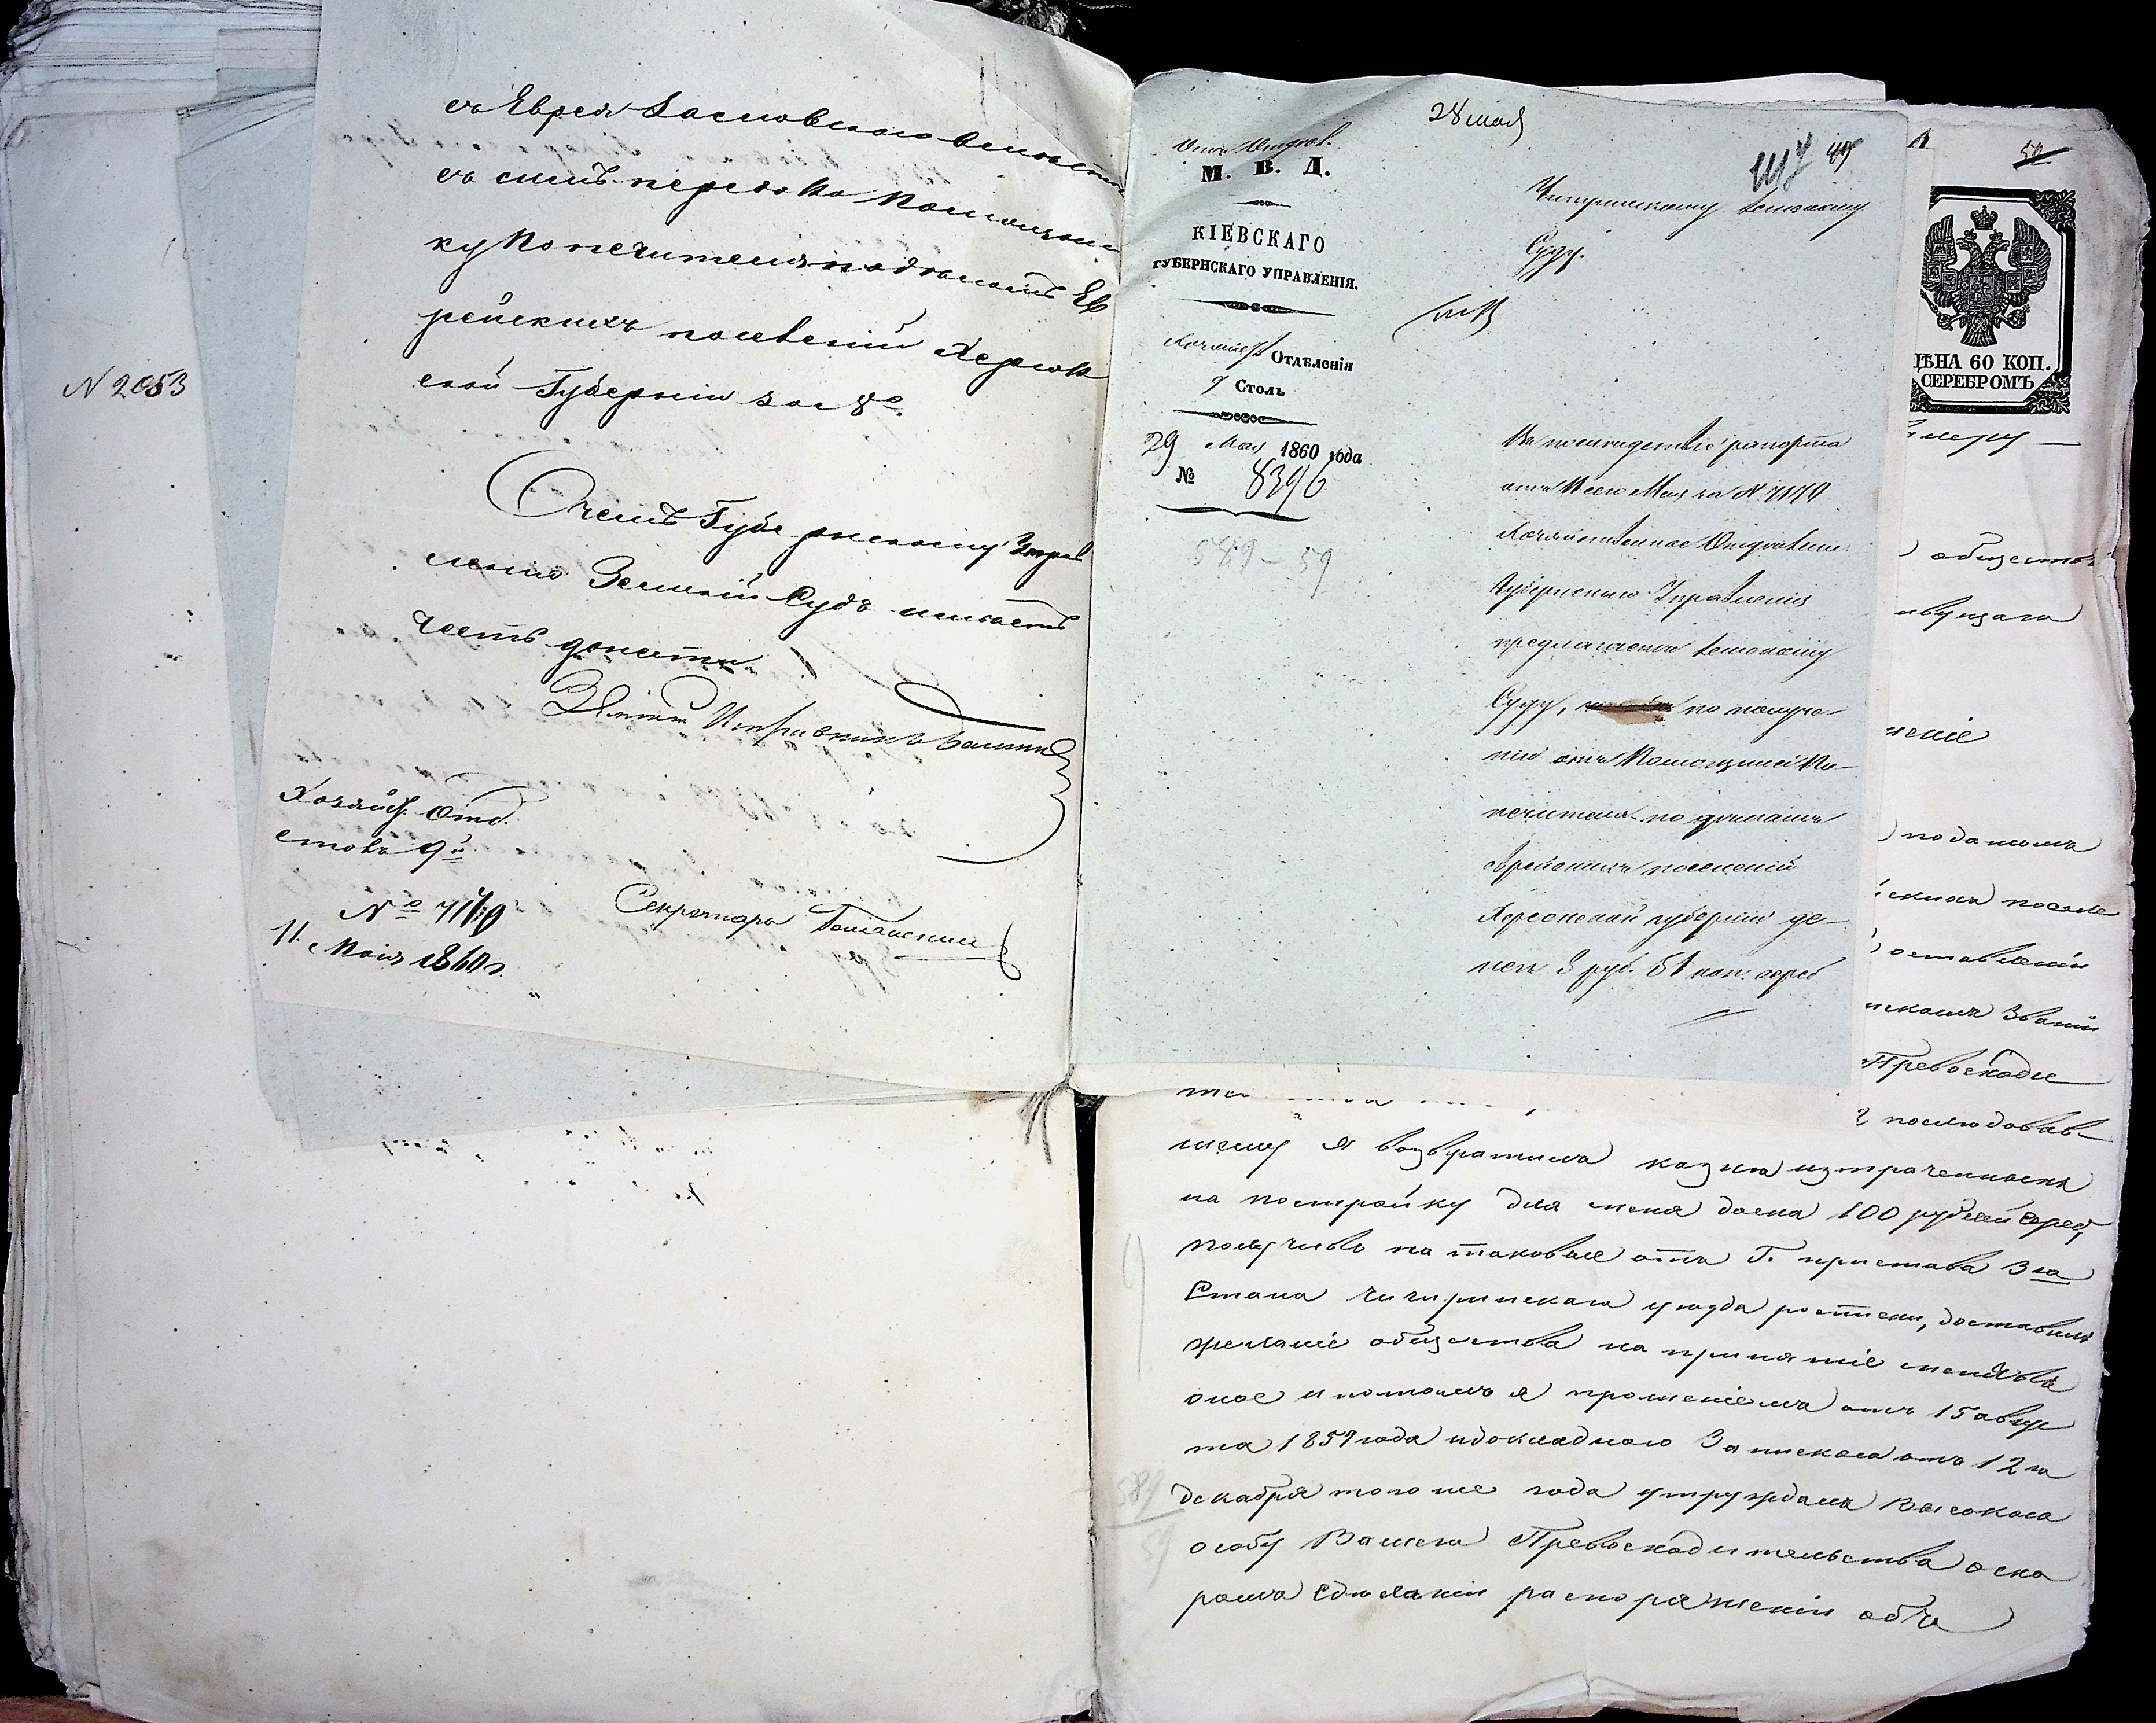 N 2053
съ Еврея Засловскаго
съ симъ передъ Помощни
ку Попечителя надъ Ев
рейскихъ поселеній Херсон
ской Губерніи за №
О чемъ Губернскому Управ
ленію Земскій Судъ имѣетъ
честь донести.
Исправникъ
Хозяйст. Отд.
столъ 9й
№ 7179
11 Мая 1860 г.
Секретарь
28 мая
М. В. Д.
КІЕВСКАГО
ГУБЕРНСКАГО УПРАВЛЕНІЯ.
Отдѣленія
9 Столъ
29 Мая 1860 года
№ 8396
589-59
49
Чигиринскому Земскому
Суду.
Въ послѣдствіе рапорта
отъ 11го Мая за № 7179
Хозяйственное Отдѣленіе
Губернскаго Управленія
предлагаетъ Земскому
Суду, по получе-
ніи отъ Помощника По-
печителя по
еврейскихъ поселеній
Херсонской губерніи де-
негъ 3 руб. 51 коп. сереб
50
ЦѢНА 60 КОП.
СЕРЕБРОМЪ
обществ
вующаго
шеніе
подалъ
скихъ поселе
оставленіи
званіи
Превосходи
послѣдовав
шему я возвратилъ казнѣ изтраченныхъ
на постройку для меня дома 100 рублей сереб,
получивъ на таковые отъ Г. пристава 3го
Стана Чигиринскаго уѣзда росписки, доставилъ
желаніе общества на принятіе меня въ
оное и потомъ я прошеніемъ отъ 15 авгус
та 1859 года и докладною Запискою отъ 12го
декабря того же года утруждалъ Высокую
особу Вашего Превосходительства о ско
ромъ сдѣланіи распоряженіи объ
589
59